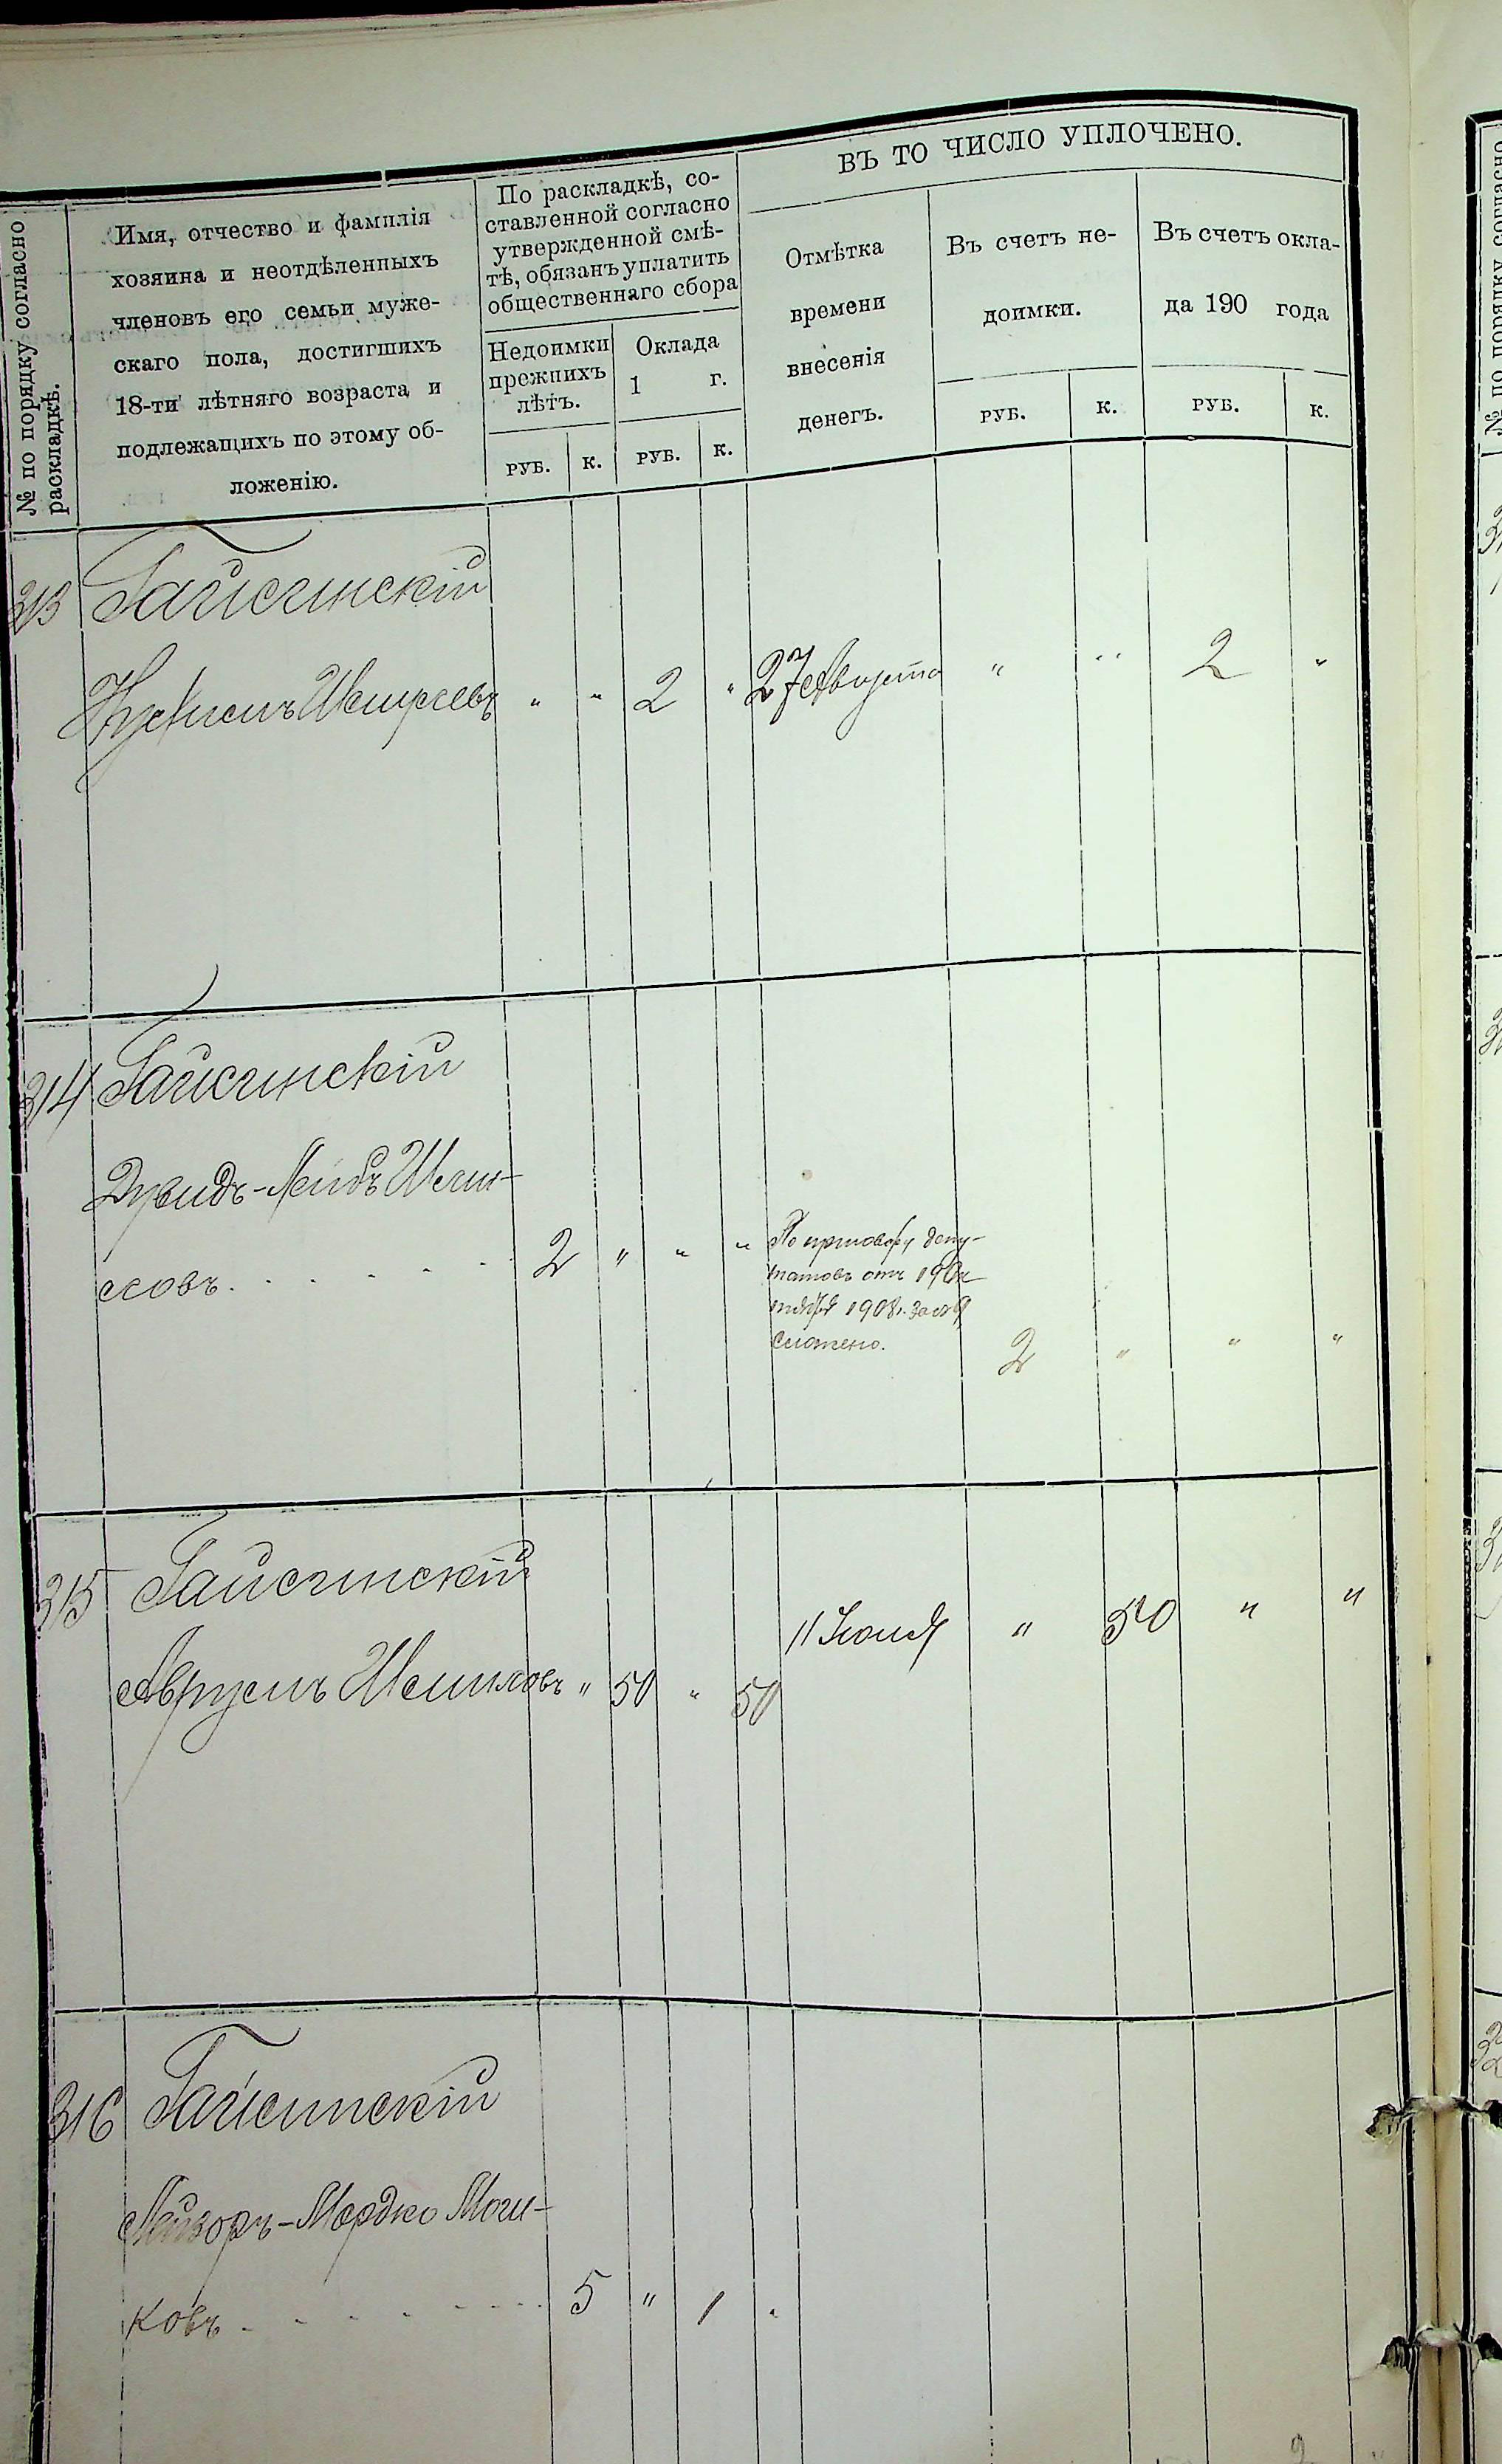 ВЪ ТО ЧИСЛО УПЛОЧЕНО.
№ по порядку согласно
раскладкѣ.
Имя, отчество и фамилія
хозяина и неотдѣленныхъ
членовъ его семьи муже-
скаго пола, достигшихъ
18-ти лѣтняго возраста и
подлежащихъ по этому об-
ложенію.
По раскладкѣ, со-
ставленной согласно
утвержденной смѣ-
тѣ, обязанъ уплатить
общественнаго сбора
Недоимки
прежнихъ
лѣтъ.
Оклада
1 г.
Отмѣтка
времени
внесенія
денегъ.
Въ счетъ не-
доимки.
Въ счетъ окла-
да 190 года
РУБ. К. РУБ. К. РУБ. К. РУБ. К.
313 Гайсинскій
" " 2 " 27 Августа " " 2 "
314 Гайсинскій
Дувидъ-Лейбъ
2 " " "
По приговору депу-
татовъ отъ
1908 г. за
сложено.
2 " " "
315 Гайсинскій
Аврумъ " 50 " 50
11 Іюля " 50 " "
316 Гайсинскій
Лейзоръ-Мордко
ковъ 5 " 1 "
2